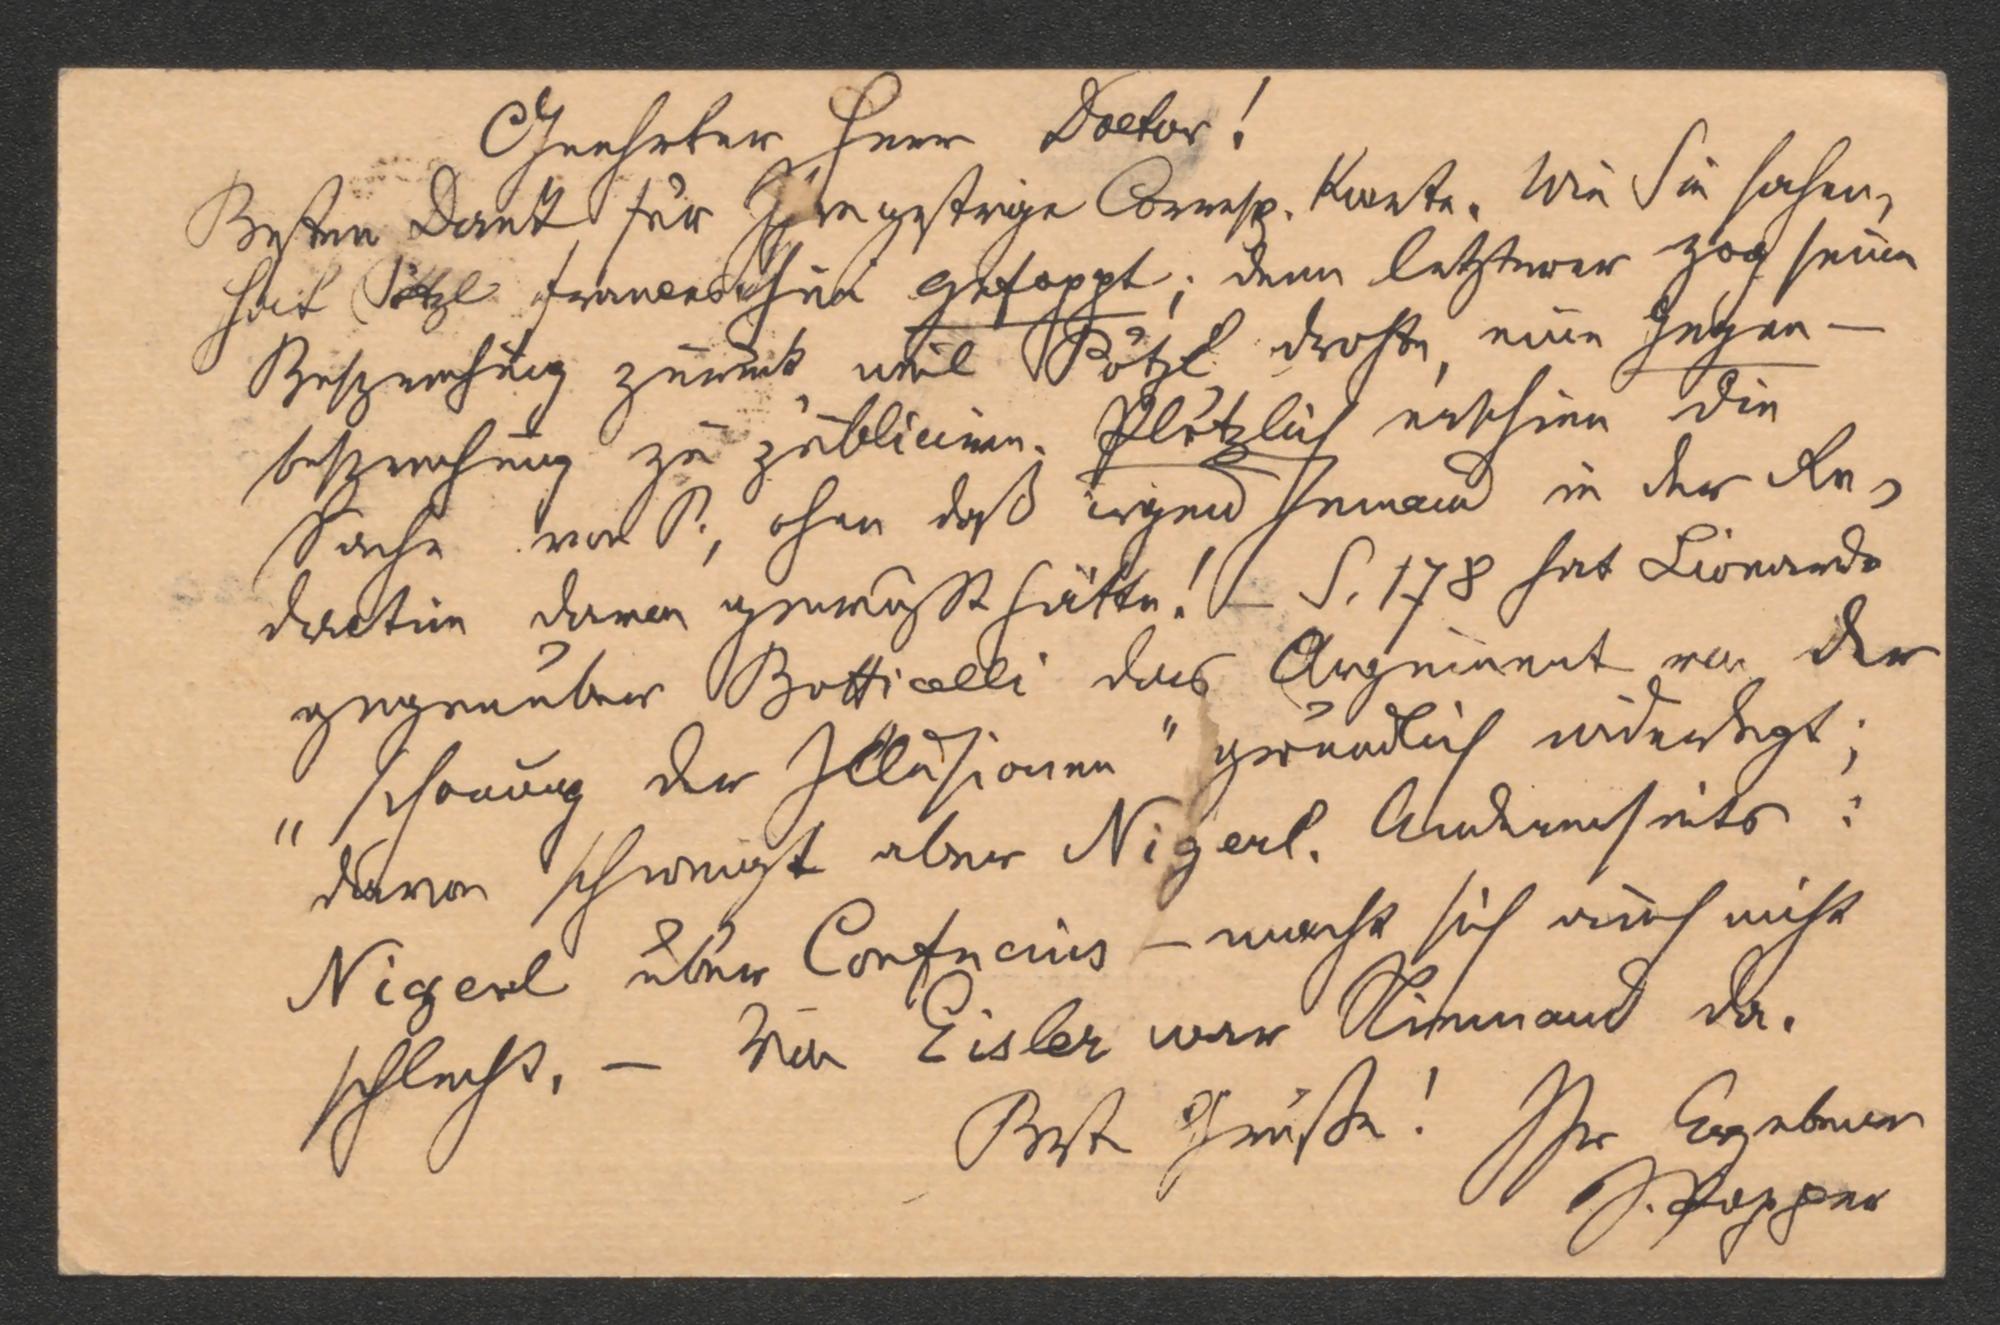 Geehrter Herr Doctor!
Besten Dank für Ihre gestrige Corresp. Karte. Wie Sie sahen,
hat Pötzl Franceschini gefoppt; denn letzterer zog seine
Besprechung zurück weil Pötzl drohte, eine Gegen-
besprechung zu publiciren. Plötzlich erschien die
Sache von P., ohne daß irgend Jemand in der Re-
daction davon gewußt hätte! – S. 178 hat Lionardo
gegenüber Botticelli das Argument von der
"Schonung der Illusionen" gründlich widerlegt;
davon schweigt aber Nigerl. Andererseits:
Nigerl über Confucius – macht sich auch nicht
schlecht. – Von Eisler war Niemand da.
Beste Grüße! Ihr Ergebener
J. Popper